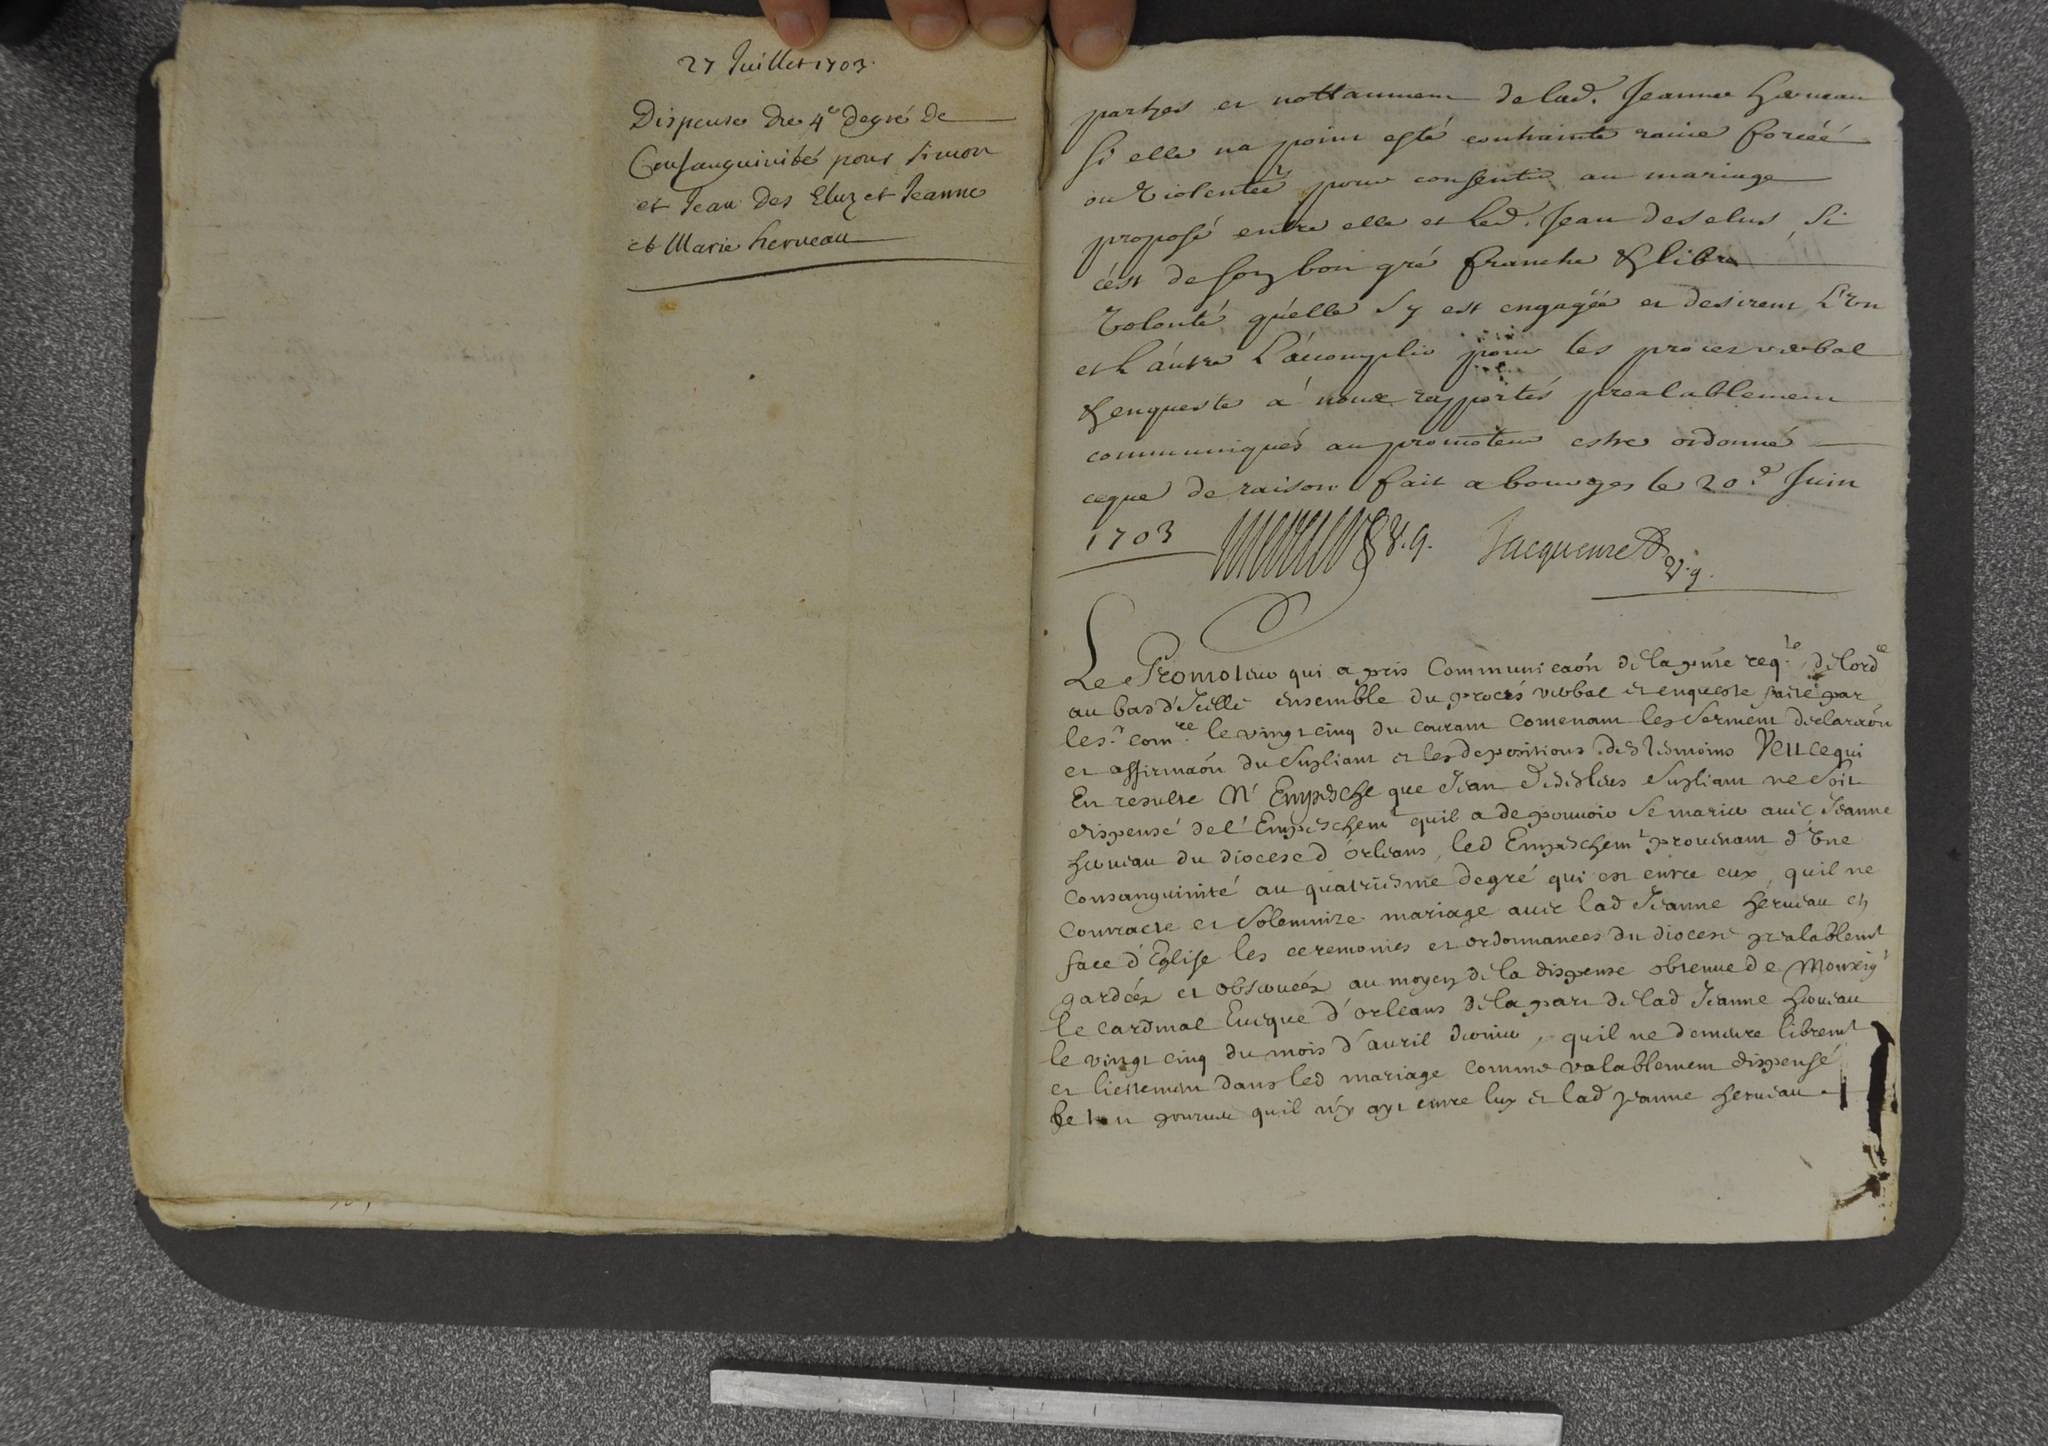 27 Juillet 1703.
Dispense du 4e degré de
Consanguinité pour Simon
et Jean Des Eluz et Jeanne
et Marie herueau
partyes et nottamment de lad. Jeanne herueau
si elle na point esté contrainte rauie forcéé
ou Violentéé pour consentir au mariage
proposé entre elle et led. Jean deselus, si
c'est de son bon gré franche & libre
Volonté qu'elle s'y est engagéé et desirent L'Vn
et L'autre L'accomplir pour les proces verbal
& enqueste à nous rapportés prealablement
communiqués au promoteur estre ordonné
ceque de raison fait a bourges le 20e Juin
1703 v.g. Jacquemet v.g.
Le Promoteur qui a pris Communicaõn de la pñte reqte, de lordce
au bas d'Icelle ensemble du procés verbal et enqueste faite par
le sr comre le vingt cinq du courant contenant les serment declaraõn
et affirmaõn du supliant et les depositions des tesmoins Veu ce qui
En resulte N'Empesche que Jean Desdelus supliant ne soit
dispensé de l'Empeschemt quil a de pouuoir se marier auec Jeanne
herueau du diocese d'orleans, led Empeschemt prouenant d'Vne
Consanguinité au quatriesme degré qui est entre eux, quil ne
Contracte et solemnize mariage auec lad Jeanne herueau en
face d'Eglise les ceremonies et ordonnances du diocese prealablemt
gardéés et obseruéés au moyen de la dispense obtenue de Monseigr
le cardinal Euesque d'orleans de la part de lad Jeanne herueau
le vingt cinq du mois d'auril dernier, quil ne demeure libremt
et licitement dans led mariage comme valablement dispensé
pourueu quil n'y ayt entre luy et lad Jeanne herueau